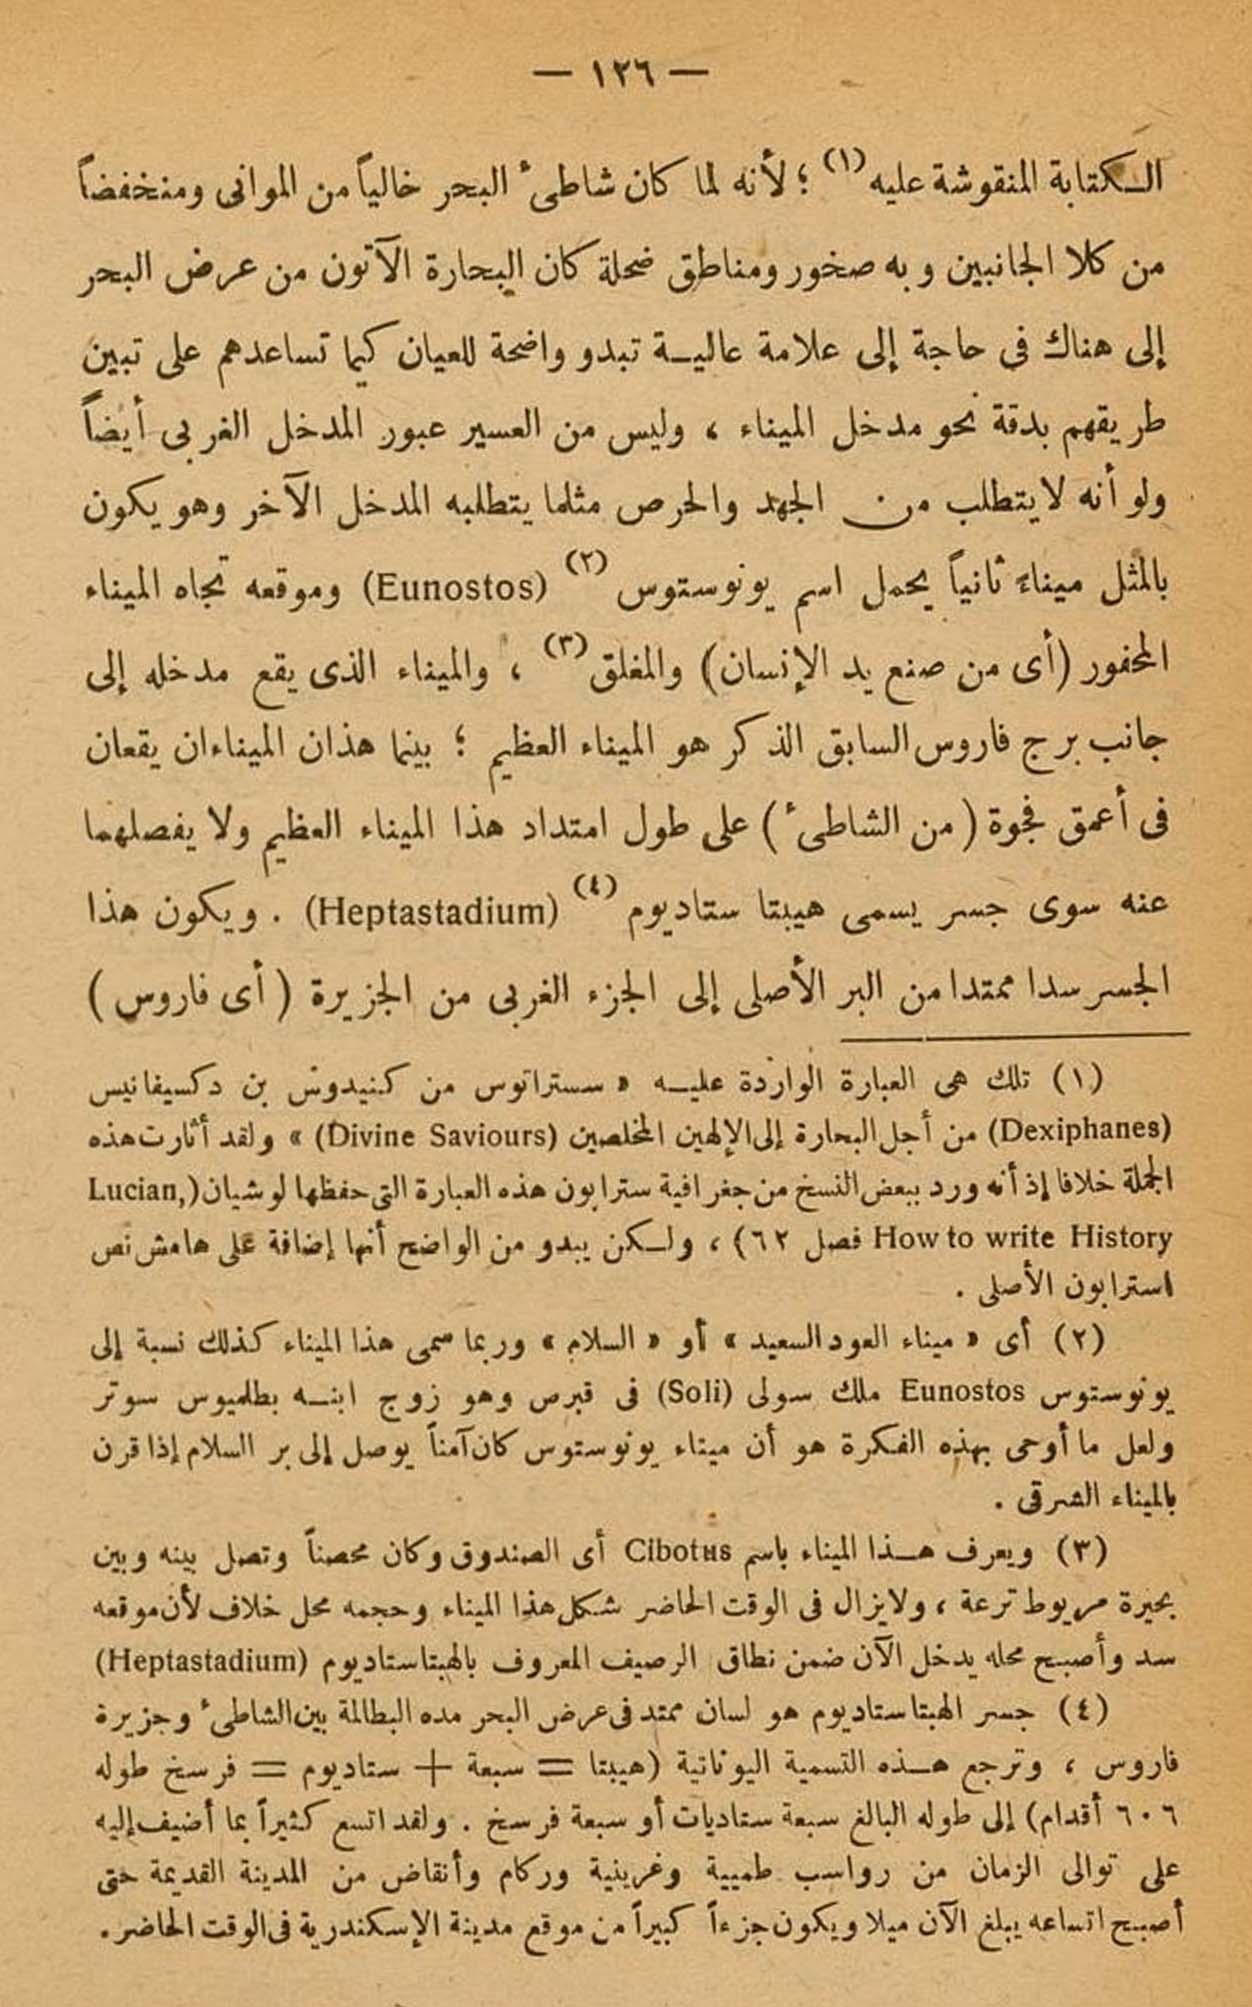 — ١٢٦ —
الكتابة المنقوشة عليه (١) ؛ لأنه لما كان شاطىء البحر خالياً من الموانى ومنخفضاً
من كلا الجانبين وبه صخور ومناطق ضحلة كان البحارة الآتون من عرض البحر
إلى هناك فى حاجة إلى علامة عالية تبدو واضحة للعيان كيما تساعدهم على تبين
طريقهم بدقة نحو مدخل الميناء ، وليس من العسير عبور المدخل الغربى أيضاً
ولو أنه لا يتطلب من الجهد والحرص مثلما يتطلبه المدخل الآخر وهو يكون
بالمثل ميناءً ثانياً يحمل اسم يونوستوس (٢) (Eunostos) وموقعه تجاه الميناء
المحفور (أى من صنع يد الإنسان) والمغلق (٣) ، والميناء الذى يقع مدخله إلى
جانب برج فاروس السابق الذكر هو الميناء العظيم ؛ بينما هذان الميناءان يقعان
فى أعمق فجوة ( من الشاطىء ) على طول امتداد هذا الميناء العظيم ولا يفصلهما
عنه سوى جسر يسمى هيبتا ستاديوم (٤) (Heptastadium) . ويكون هذا
الجسر سدا ممتدا من البر الأصلى إلى الجزء الغربى من الجزيرة ( أى فاروس )
(١) تلك هى العبارة الواردة عليه « سستراتوس من كنيدوش بن دكسيفانيس
(Dexiphanes) من أجل البحارة إلى الإلهين المخلصين (Divine Saviours) » ولقد أثارت هذه
الجملة خلافا إذ أنه ورد ببعض النسخ من جغرافية سترابون هذه العبارة التى حفظها لوشيان (Lucian,
How to write History فصل ٦٢) ، ولكن يبدو من الواضح أنها إضافة على هامش نص
استرابون الأصلى .
(٢) أى « ميناء العود السعيد » أو « السلام » وربما سمى هذا الميناء كذلك نسبة إلى
يونوستوس Eunostos ملك سولى (Soli) فى قبرص وهو زوج ابنه بطلميوس سوتر
ولعل ما أوحى بهذه الفكرة هو أن ميناء يونوستوس كان آمناً يوصل إلى بر السلام إذا قرن
بالميناء الشرقى .
(٣) ويعرف هذا الميناء باسم Cibotus أى الصندوق وكان محصناً وتصل بينه وبين
بحيرة مريوط ترعة ، ولا يزال فى الوقت الحاضر شكل هذا الميناء وحجمه محل خلاف لأن موقعه
سد وأصبح محله يدخل الآن ضمن نطاق الرصيف المعروف بالهبتاستاديوم (Heptastadium)
(٤) جسر الهبتاستاديوم هو لسان ممتد فى عرض البحر مده البطالمة بين الشاطىء وجزيرة
فاروس ، وترجع هذه التسمية اليوناتية (هيبتا = سبعة + ستاديوم = فرسخ طوله
٦٠٦ أقدام) إلى طوله البالغ سبعة ستاديات أو سبعة فرسخ . ولقد اتسع كثيراً بما أضيف إليه
على توالى الزمان من رواسب طميية وغرينية وركام وأنقاض من المدينة القديمة حتى
أصبح اتساعه يبلغ الآن ميلا ويكون جزءاً كبيراً من موقع مدينة الإسكندرية فى الوقت الحاضر.